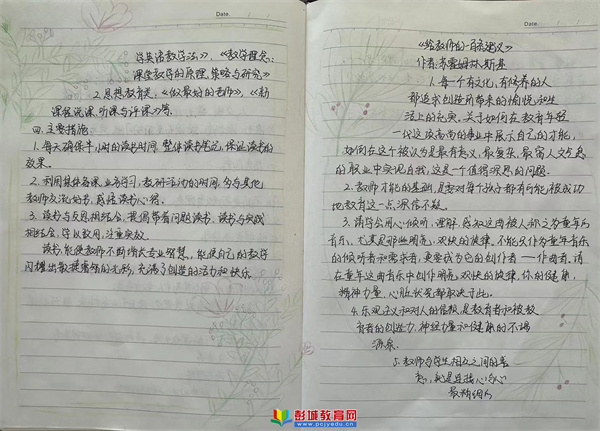 Date.
学英语教学法》、《教学理念:
课堂教学的原理、策略与研究》
2.思想教育类,《做最好的老师》、《新
课程说课、听课与评课》等.
四、主要措施:
1.每天确保半小时的读书时间,整体读书笔记,保证读书的
效果。
2.利用集体备课、业务学习、教研活动的时间,多与其他
教师交流的书,感悟读书心得。
3.读书与反思相结合,提倡带着问题读书,读书与实践
相结合,学以致用,注重实效。
读书,能使教师不断增长专业智慧,能使自己的教学
闪耀出睿智的光彩,充满了创造的活力和快乐。
Date.
《给教师的一百条建议》
作者:苏霍姆林斯基
1.每一个有文化、有修养的人
都追求创造所带来的愉悦和生
活上的充实。关于如何在教育年轻
一代这项高尚的事业中展示自己的才能,
如何在这个被认为是最有意义、最复杂、最富人文色彩
的职业中实现自我,这是一个值得深思的问题.
2.教师才能的基础,是要对每个孩子都有可能被成功
地教育这一点深信不疑。
3.请学会用心倾听、理解、感知这曲被人称之为童年的
音乐,尤其是那些明亮、欢快的旋律。不能仅作为童年音乐
的倾听者和需求者,更要成为它的创作者——作曲者。请
在童年这曲音乐中创作明亮、欢快的旋律。你的健康,
精神力量、心脏状况都取决于此。
4.乐观主义和对人的信赖,是教育者和被教
育者的创造力、神经力量和健康的不竭
源泉
5.教师与学生相互之间的善
意,就是连接心与心
最精细的
彭城教育网
www.pcjyedu.cn